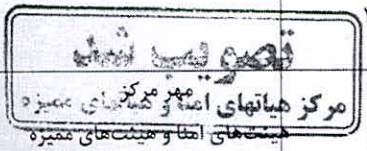 تصویب شد
مهر مرکز
مرکز هیاتهای امنا و هیئتهای ممیزه
هیئت‌های امنا و هیئت‌های ممیزه